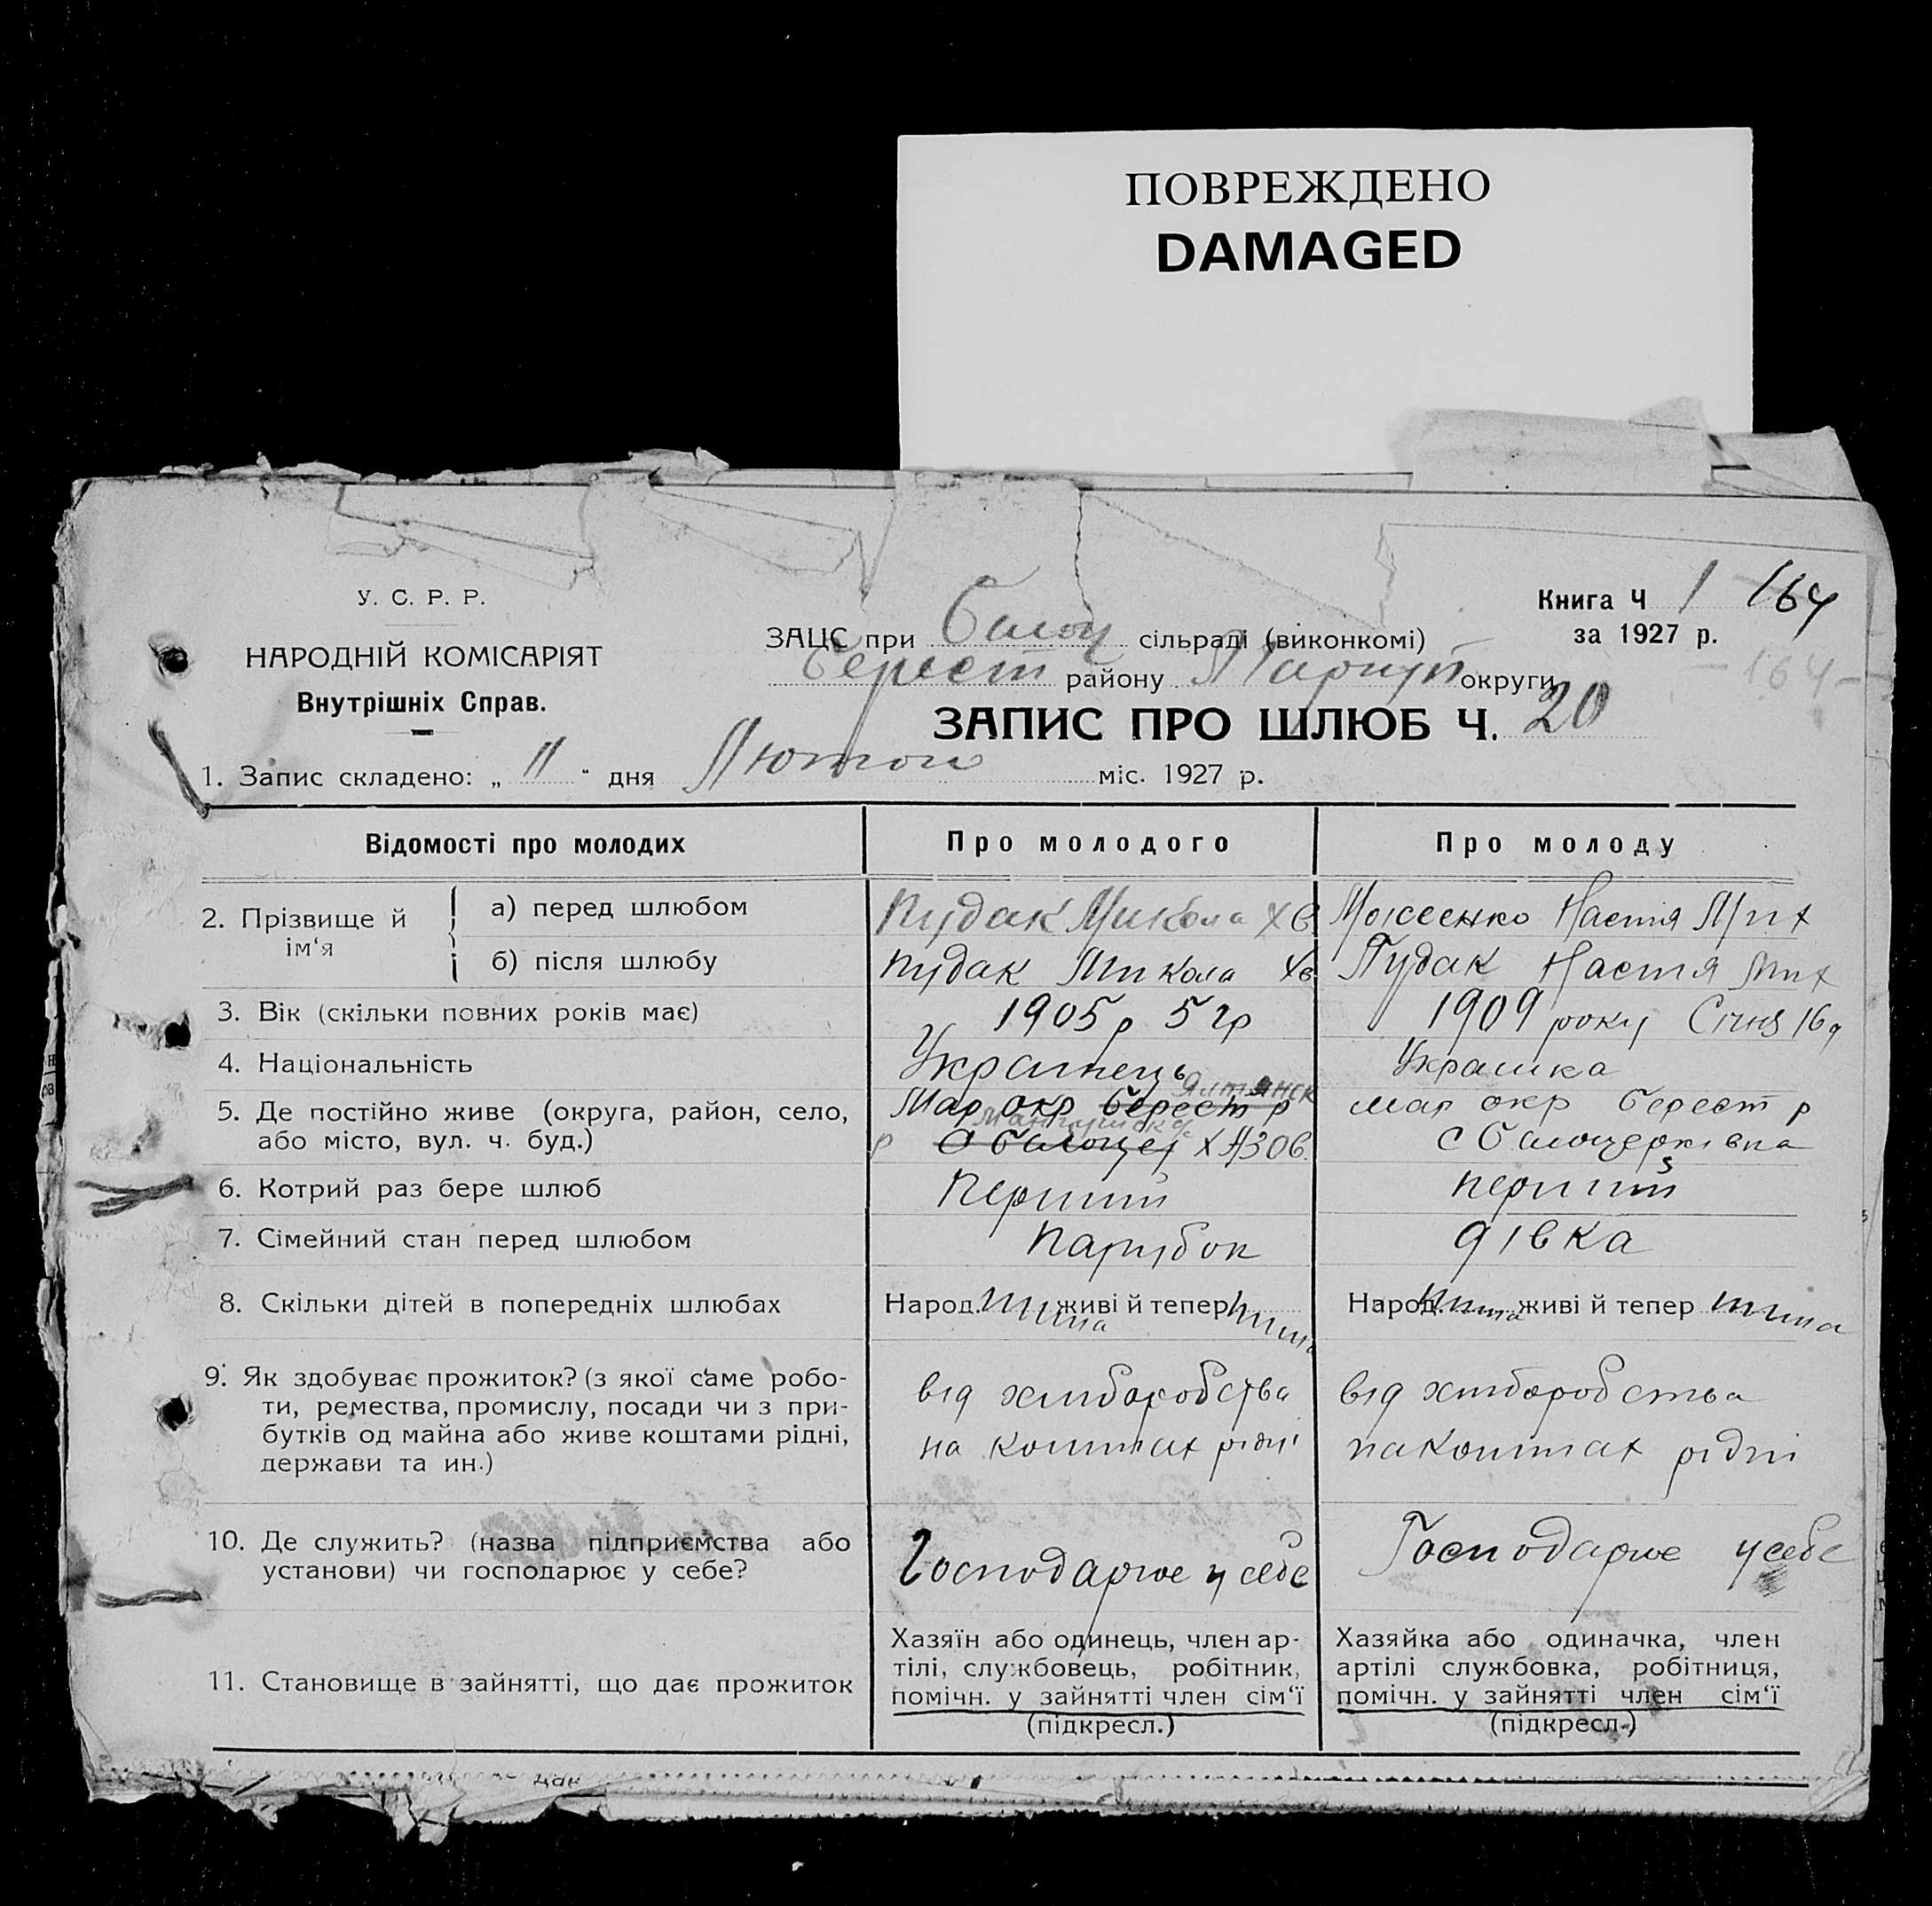 ПОВРЕЖДЕНО
DAMAGED
У. С. Р. Р.
НАРОДНІЙ КОМІСАРІЯТ
Внутрішніх Справ.
Книга Ч 1 164
за 1927 р.
164
ЗАЦС при сільраді (виконкомі)
Берест району округи
ЗАПИС ПРО ШЛЮБ Ч. 20
1. Запис складено: „ 11 “ дня Лютого міс. 1927 р.
Відомості про молодих
Про молодого
Про молоду
2. Прізвище й ім‘я
а) перед шлюбом
Пудак Микола Хв
Мойсеенко Настя Мих
б) після шлюбу
Пудак Микола Хв
Пудак Настя Мих
3. Вік (скільки повних років має)
1905 р 5 гр
1909 року Січня 16 д
4. Національність
Украінець
Украінка
5. Де постійно живе (округа, район, село,
або місто, вул. ч. буд.)
Мар окр Берест р
Ялтянск
р Мангушск
с Білоцер Х Азов
мар окр берест р
с Білоцерківка
6. Котрий раз бере шлюб
Перший
перший
7. Сімейний стан перед шлюбом
Парубок
дівка
8. Скільки дітей в попередніх шлюбах
Народ. Нима живі й тепер нима
Народ. Нима живі й тепер нима
9. Як здобуває прожиток? (з якої саме робо-
ти, ремества, промислу, посади чи з при-
бутків од майна або живе коштами рідні,
держави та ин.)
від хліборобства
на коштах рідні
від хліборобства
на коштах рідні
10. Де служить? (назва підприємства або
установи) чи господарює у себе?
Господарює у себе
Господарює у себе
11. Становище в зайнятті, що дає прожиток
Хазяїн або одинець, член ар-
тілі, службовець, робітник,
помічн. у зайнятті член сім‘ї
(підкресл.)
Хазяйка або одиначка, член
артілі службовка, робітниця,
помічн. у зайнятті член сім‘ї
(підкресл.)